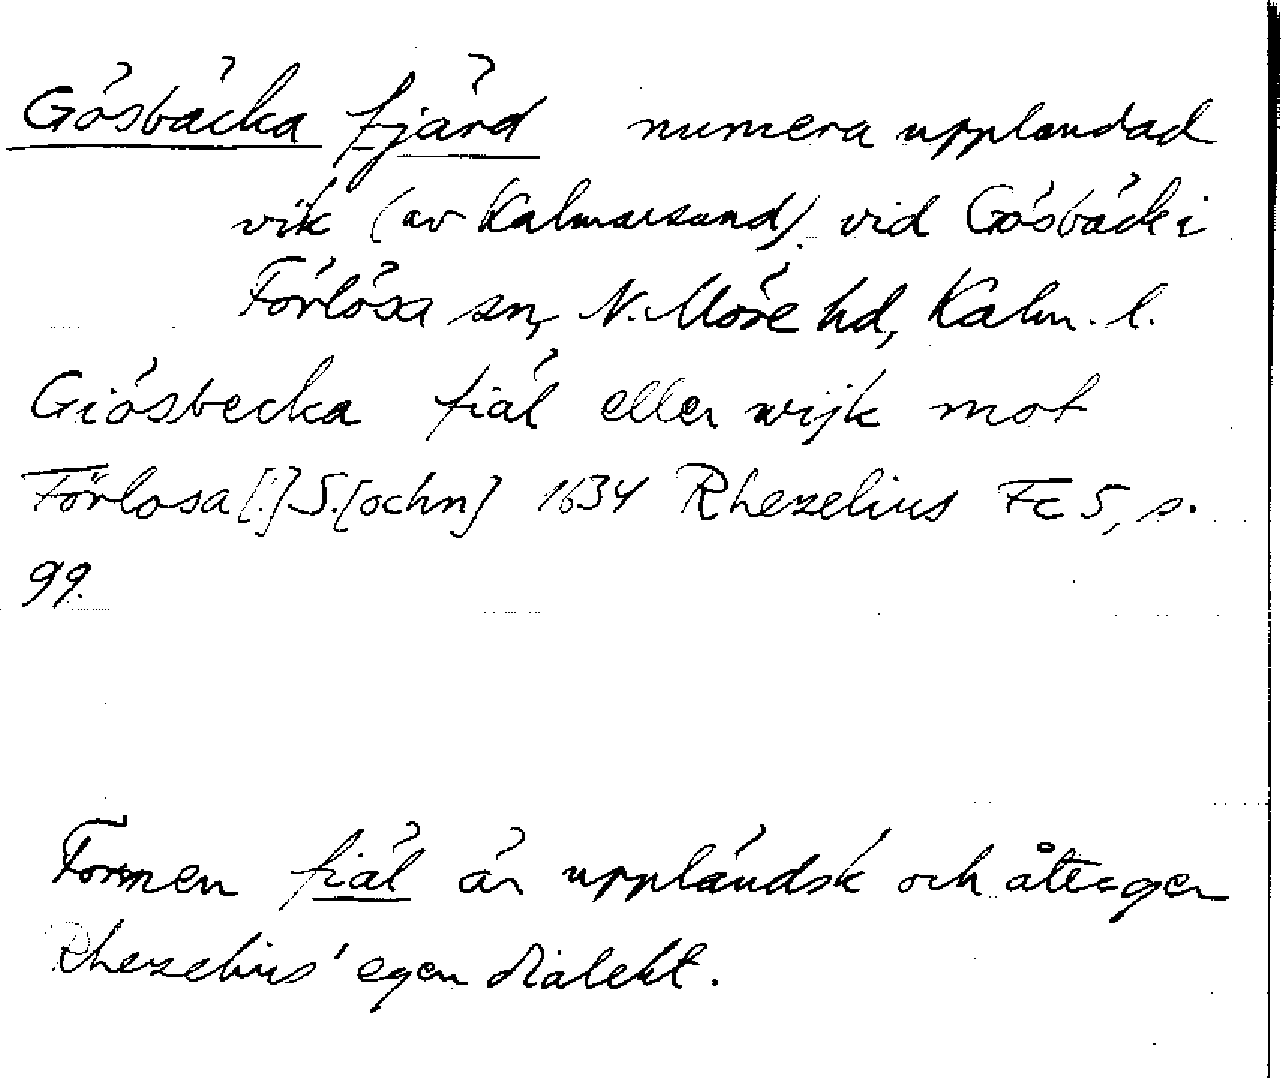 Gösbäcka fjärd numera upplandad
vik (av Kalmarsund) vid Gösbäck i
Förlösa sn, N. Möre hd, Kalm. l.
Giösbecka fiäl eller wijk mot
Förlosa [!] S. [ochn] 1634 Rhezelius Fc 5, s.
99.
Formen fiäl är uppländsk och återger
Rhezelius' egen dialekt.